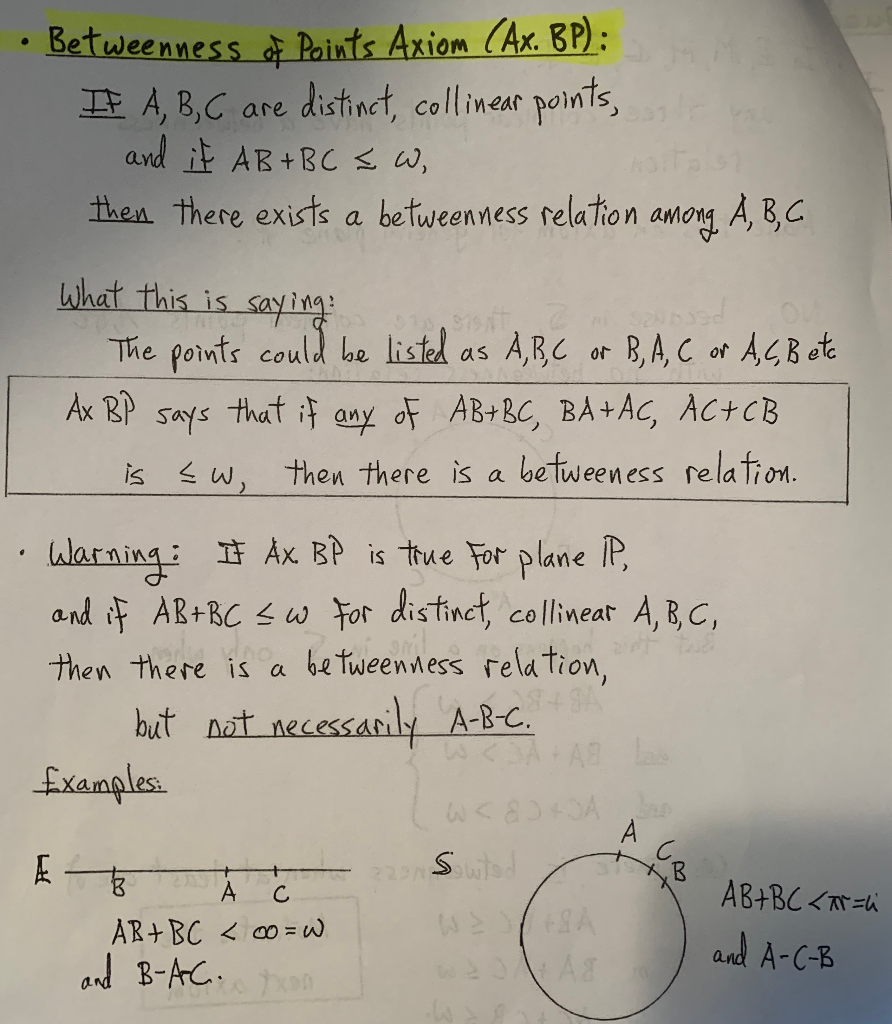 • Betweenness of Points Axiom (Ax. BP):
If A, B, C are distinct, collinear points,
and if AB + BC ≤ ω,
then there exists a betweenness relation among A, B, C
What this is saying:
The points could be listed as A, B, C or B, A, C or A, C, B etc
Ax BP says that if any of AB+BC, BA+AC, AC+CB
is ≤ ω, then there is a betweeness relation.
• Warning: If Ax BP is true for plane ℙ,
and if AB+BC ≤ ω for distinct, collinear A, B, C,
then there is a betweenness relation,
but not necessarily A-B-C.
Examples:
𝔼 B A C
AB + BC < ∞ = ω
and B-A-C.
𝕊 A C B
AB+BC < πr = ω
and A-C-B